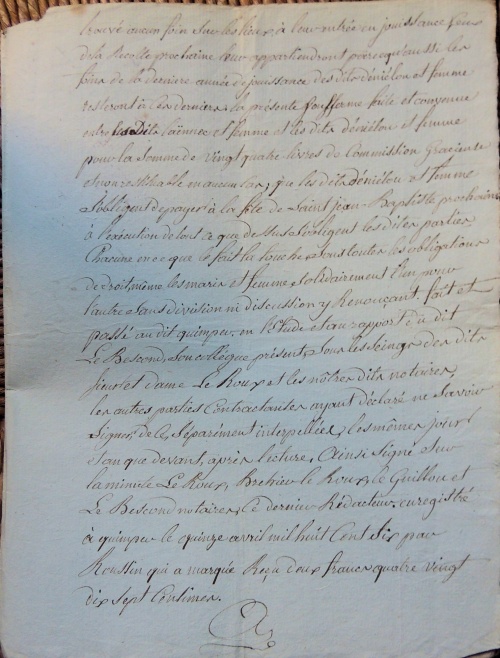 trouvé aucun foin sur les lieux à leur entrée en jouissance ceux
de la Recolte prochaine leur appartiendront parce qu'aussi les
foins de la derniere année de jouissance des dits déniélou et femme
resteront à ces derniers, la présente soufferme faite et convenue
entre les Dits Laënnec et femme et les dits déniélou et femme
pour la somme de vingt quatre livres de Commission gracieuse
et non restituable en aucun cas, que les dits déniélou et femme
s'obligent de payer à la fête de Saint Jean-Baptiste prochaine
à l'exécution de tout ce que dessus s'obligent les dites parties
Chacune en ce que le fait la touche sous toutes les obligations
de droit, même les maris et femme solidairement l'un pour
l'autre sans division ni discussion y Renonçant. fait et
passé au dit quimper en l'Etude et au rapport du dit
Le Bescond, son collègue présent, sous les seings des dits
sieur et dame Le Roux et les nôtres dits notaires,
les autres parties Contractantes ayant déclaré ne savoir
signer, de ce séparément interpellées, les mêmes jour
et an que devant, après lecture, Ainsi signé sur
la minute Le Roux, le Roux, le Guillou et
Le Bescond notaires, ce dernier Rédacteur. enregistré
à quimper le quinze avril mil huit Cent Six par
Roussin qui a marqué Reçu deux francs quatre vingt
dix sept Centimes.